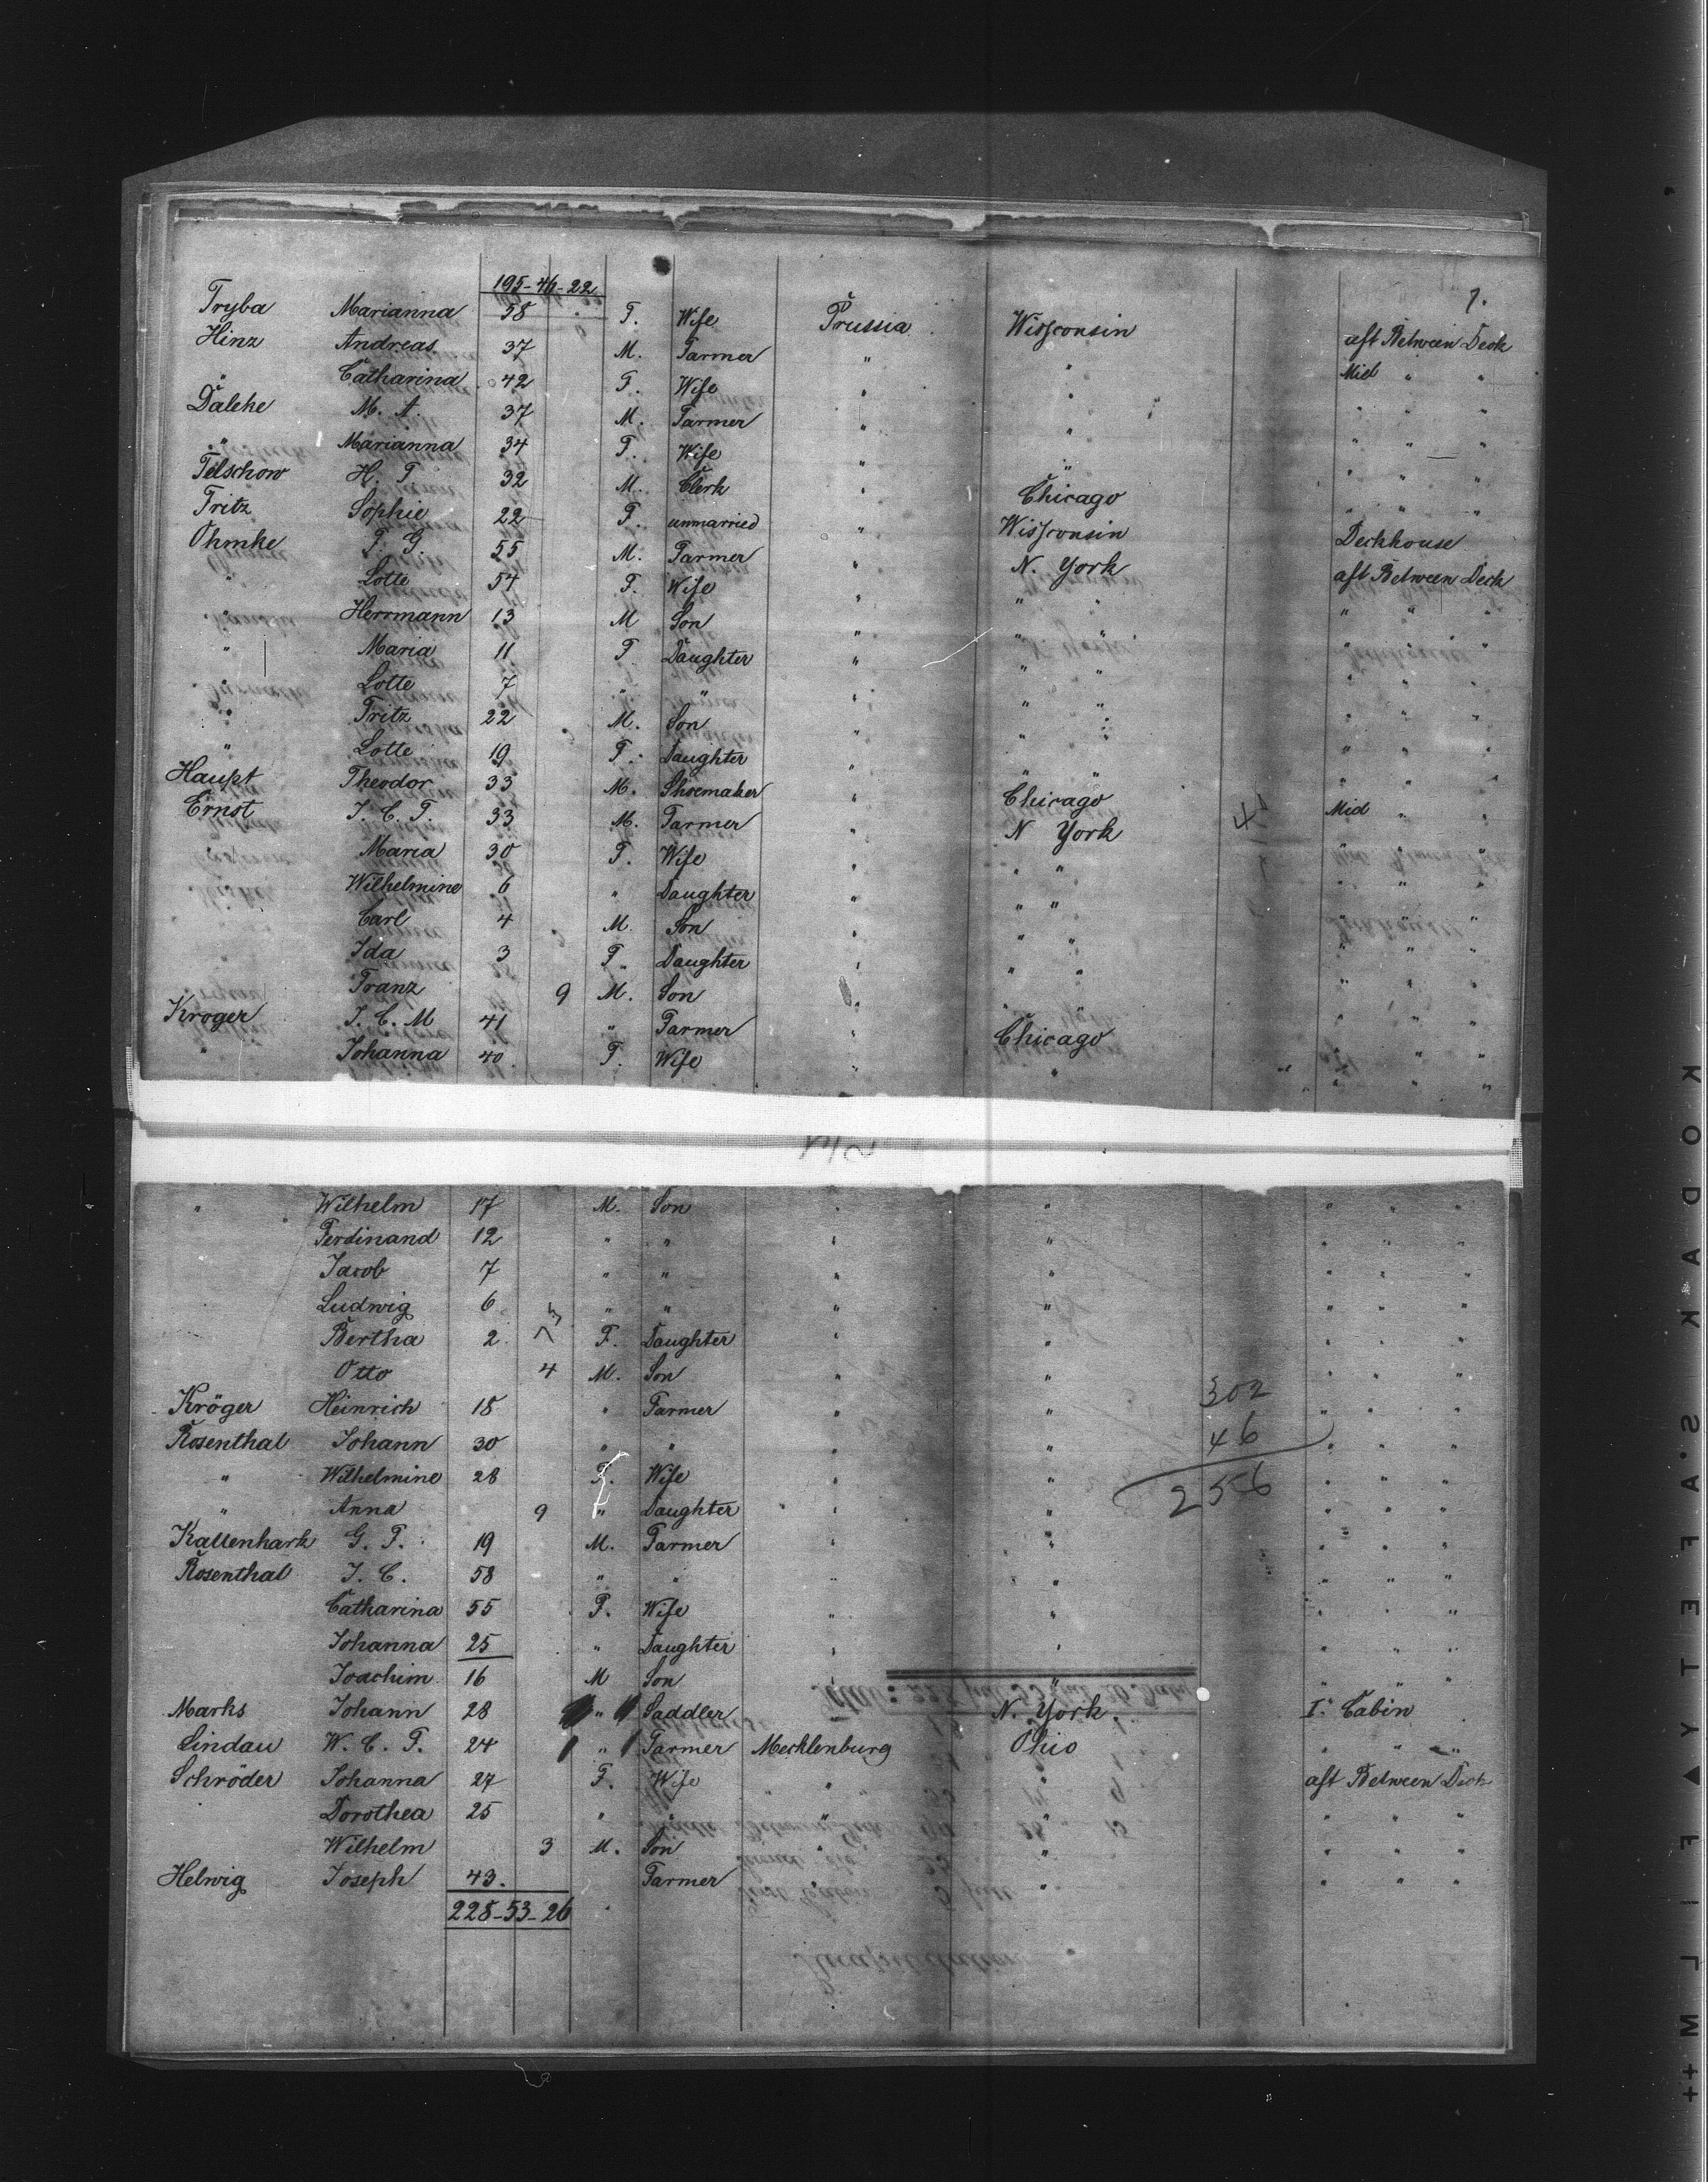 195-46-22
7.
Tryba Marianna 58 F. Wife Prussia Wisconsin aft Between Deck
Hinz Andreas 37 M. Farmer " " Mid " "
" Catharina 42 F. Wife " " " " "
Dalehe M. A. 37 M. Farmer " " " " "
" Marianna 34 F. Wife " " " " "
Telschow H. F. 32 M. Clerk " Chicago " " "
Fritz Sophie 22 F. unmarried " Wisconsin Deckhouse
Ohmke F. G. 55 M. Farmer " N. York aft Between Deck
" Lotte 54 F. Wife " " " " " "
" Herrmann 13 M Son " " " " " "
" Maria 11 F. Daughter " " " " " "
" Lotte 7 " " " " " " " "
" Fritz 22 M. Son " " " " " "
" Lotte 19 F. Daughter " " " " " "
Haupt Theodor 33 M. Shoemaker " Chicago Mid " "
Ernst J. C. F. 33 M. Farmer " N York " " "
Maria 30 F. Wife " " " " " "
Wilhelmine 6 " Daughter " " " " " "
" Carl 4 M. Son " " " " " "
" Ida 3 F. Daughter " " " " " "
Franz 9 M. Son " " " " " "
Kroger J. C. M 41 " Farmer " Chicago " " "
" Johanna 40 F. Wife " " " " "
" Wilhelm 17 M. Son " " " " "
Ferdinand 12 " " " " " " "
Jacob 7 " " " " " " "
Ludwig 6 " " " " " " "
Bertha 2 F. Daughter " " " " "
Otto 4 M. Son " " " " "
Kröger Heinrich 18 " Farmer " " 302 " " "
Rosenthal Johann 30 " " " " 46 " " "
" Wilhelmine 28 F. Wife " " 256 " " "
" Anna 9 " Daughter " " " " "
Kallenhark G. F. 19 M. Farmer " " " " "
Rosenthal J. C. 58 " " " " " " "
Catharina 55 F. Wife " " " " "
Johanna 25 " Daughter " " " " "
Joachim 16 M Son " " " " "
Marks Johann 28 " Saddler " N. York. I. Cabin
Lindau W. C. F. 24 " Farmer Mecklenburg Ohio " " "
Schröder Johanna 27 F. Wife " " aft Between Deck
Dorothea 25 " " " " " " "
Wilhelm 3 M. Son " " " " "
Helwig Joseph 43. Farmer " " " " "
228-53-26
KODAK S.A.F.E.T.Y ▲ FILM ++